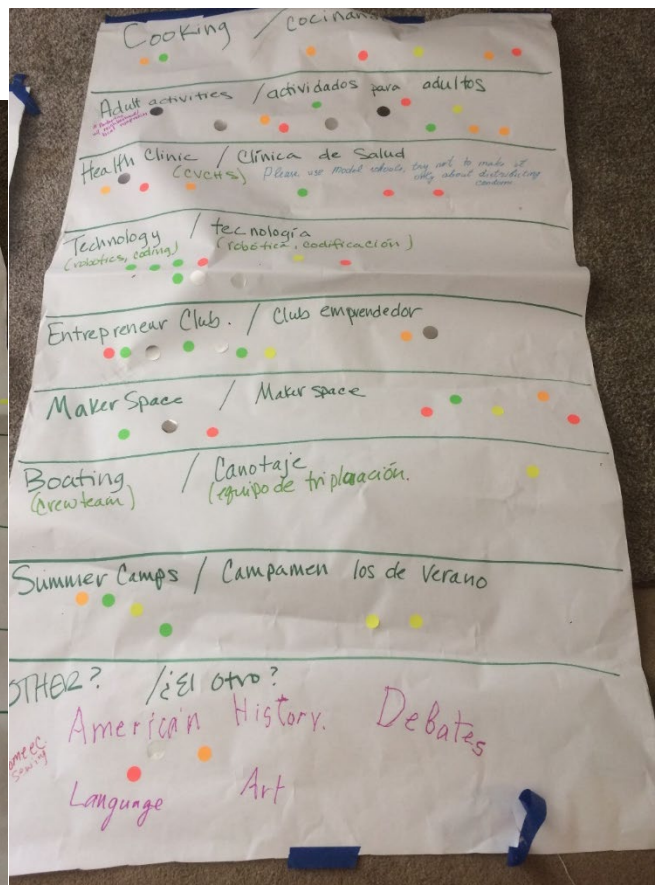 Cooking / cocinan
Adult activities / actividados para adultos
Health Clinic / Clínica de Salud
(CVCHS) Please use model schools, try not to make it
only about distributing
Technology / tecnología
(robotics, coding) (robótica, codificación)
Entrepreneur Club. / Club emprendedor
Maker Space / Maker space
Boating / Canotaje
(crew team) (equipo de triplaración.
Summer Camps / Campamen los de Verano
OTHER? / ¿El otro?
American History. Debates
Sewing
Language Art